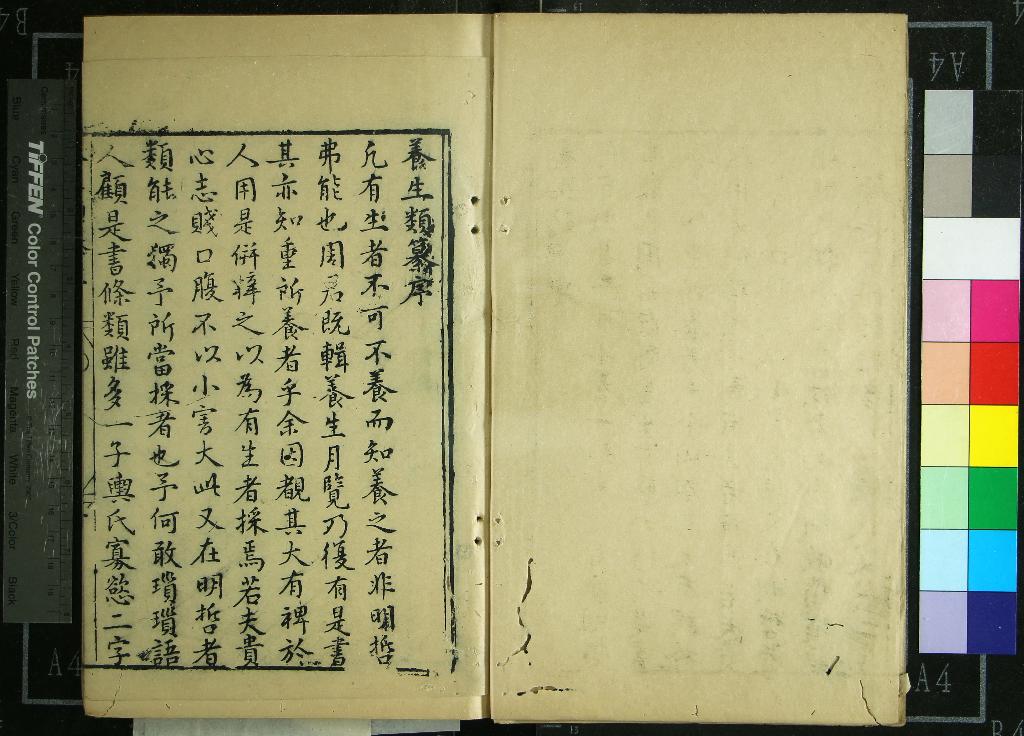 養生類纂序
凢有生者不可不養而知養之者非明哲
弗能也周君既輯養生月覽乃復有是書
其亦知重所養者乎余因覩其大有裨於
人用是併鋟之以為有生者採焉若夫貴
心志賤口腹不以小害大此又在明哲者
類能之獨予所當採者也予何敢瑣瑣語
人顧是書條類雖多一子輿氏寡慾二字
TIFFEN Color Control Patches
Blue
Cyan
Green
Yellow
Red
Magenta
White
3/Color
Black
A4
A4
A4
B4